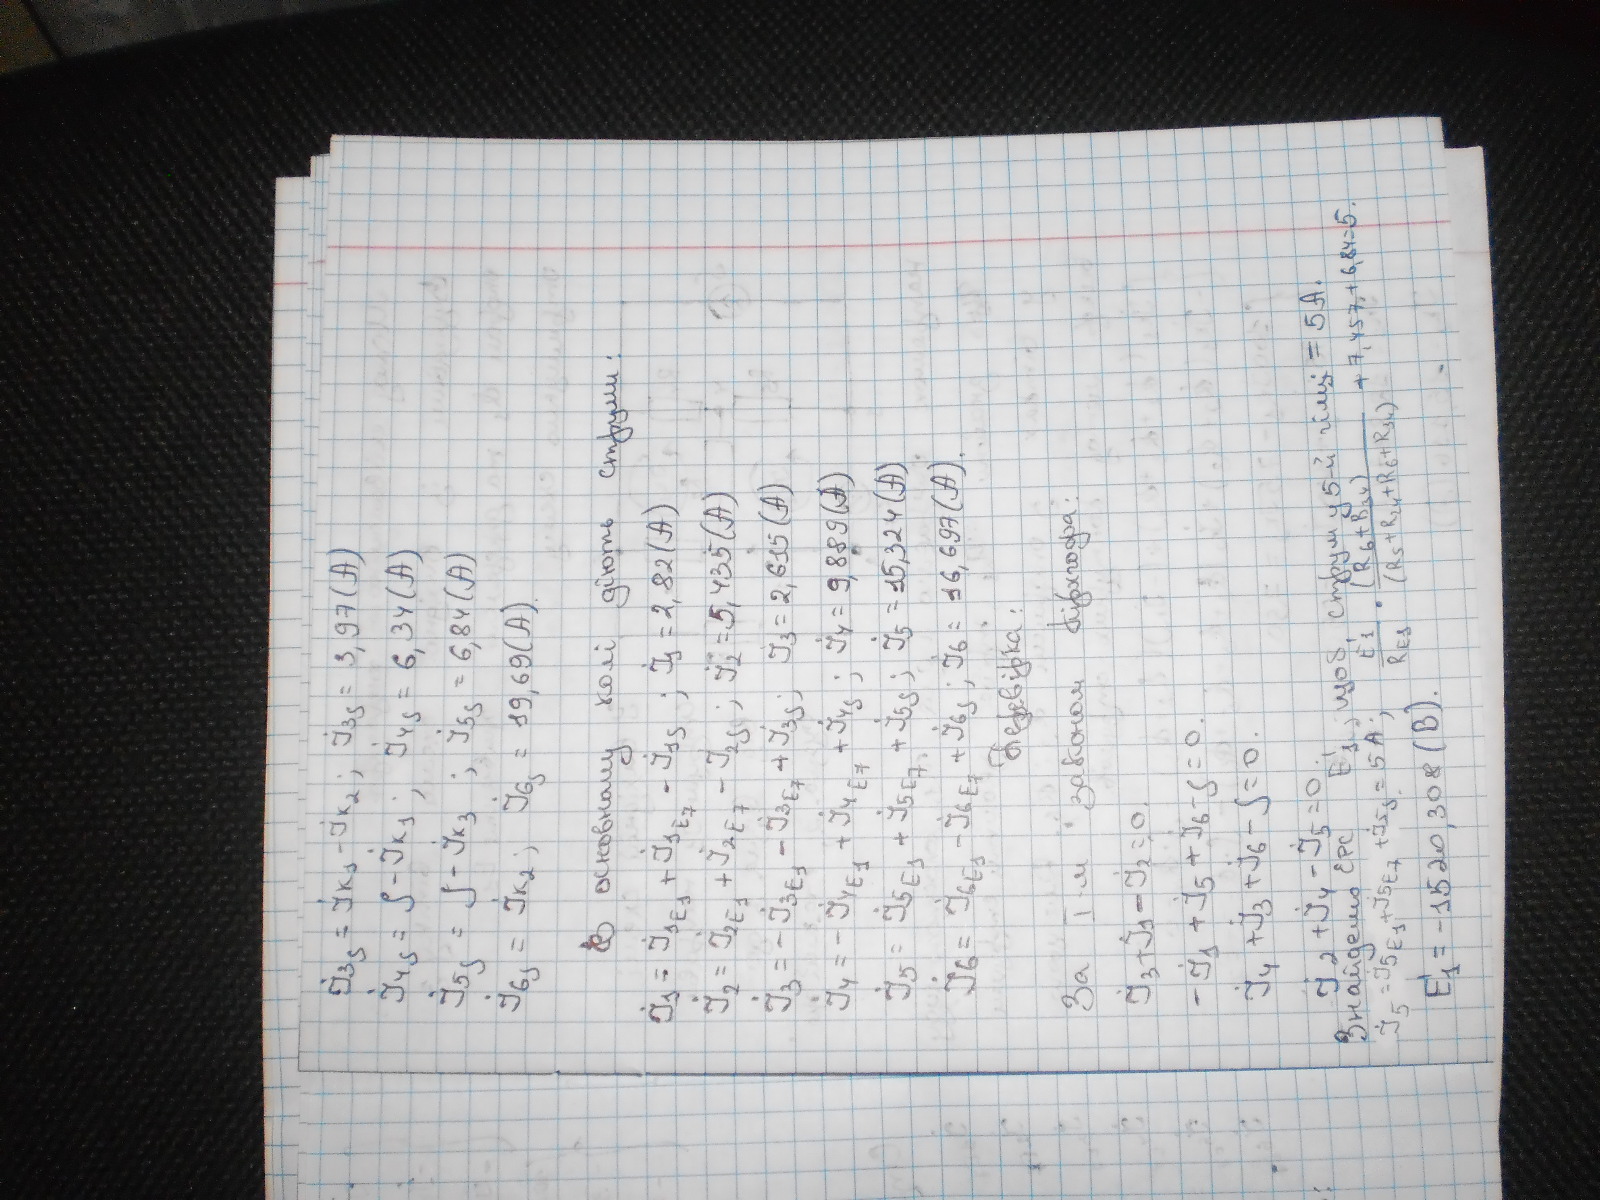 I3J = Iк1 - Iк2; I3J = 3,97(A)
I4J = J - Iк1; I4J = 6,34(A)
I5J = J - Iк3; I5J = 6,84(A)
I6J = Iк2; I6J = 19,69(A).
В основному колі діють струми:
I1 = I1E1 + I1E7 - I1J; I1 = 2,82(A)
I2 = I2E1 + I2E7 - I2J; I2 = 5,435(A)
I3 = -I3E1 - I3E7 + I3J; I3 = 2,615(A)
I4 = -I4E1 + I4E7 + I4J; I4 = 9,889(A)
I5 = I5E1 + I5E7 + I5J; I5 = 15,324(A)
I6 = I6E1 - I6E7 + I6J; I6 = 16,697(A).
Перевірка:
За I-м законом Кірхгофа:
I3 + I1 - I2 = 0.
-I1 + I5 + I6 - J = 0.
I4 + I3 + I6 - J = 0.
I2 + I4 - I5 = 0.
Знайдемо ЕРС E1', щоб струм у 5-й гілці = 5A.
I5 = I5E1 + I5E7 + I5J = 5A; E1'/RE1 · (R6+R34)/(R5+R24+R6+R34) + 7,457 + 6,84 = 5.
E1' = -1520,308 (B).